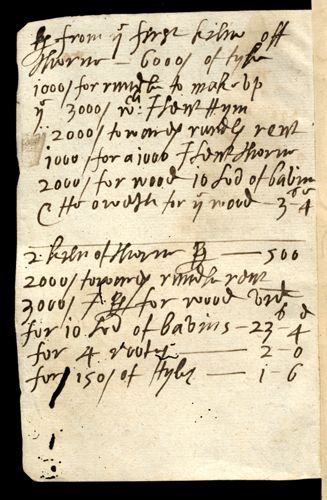 from yͤ first kilne off
Thorne – 6000 of tyle
1000 for rundle to make up
yͤ 3000 wͨ I lent Hym
2000 towards rundls rent
1000 for a 1000 I lent Thorne
2000 for wood 10 lod of babins
He oweth for yͤ wood – 3 – 4
2 kiln of Thorne – 500
2000 towards rundls rent
3000 for wood
for 10 lod of babins – 23 – 4
for 4 – 2 – 0
for 150 of tyles – 1 – 6